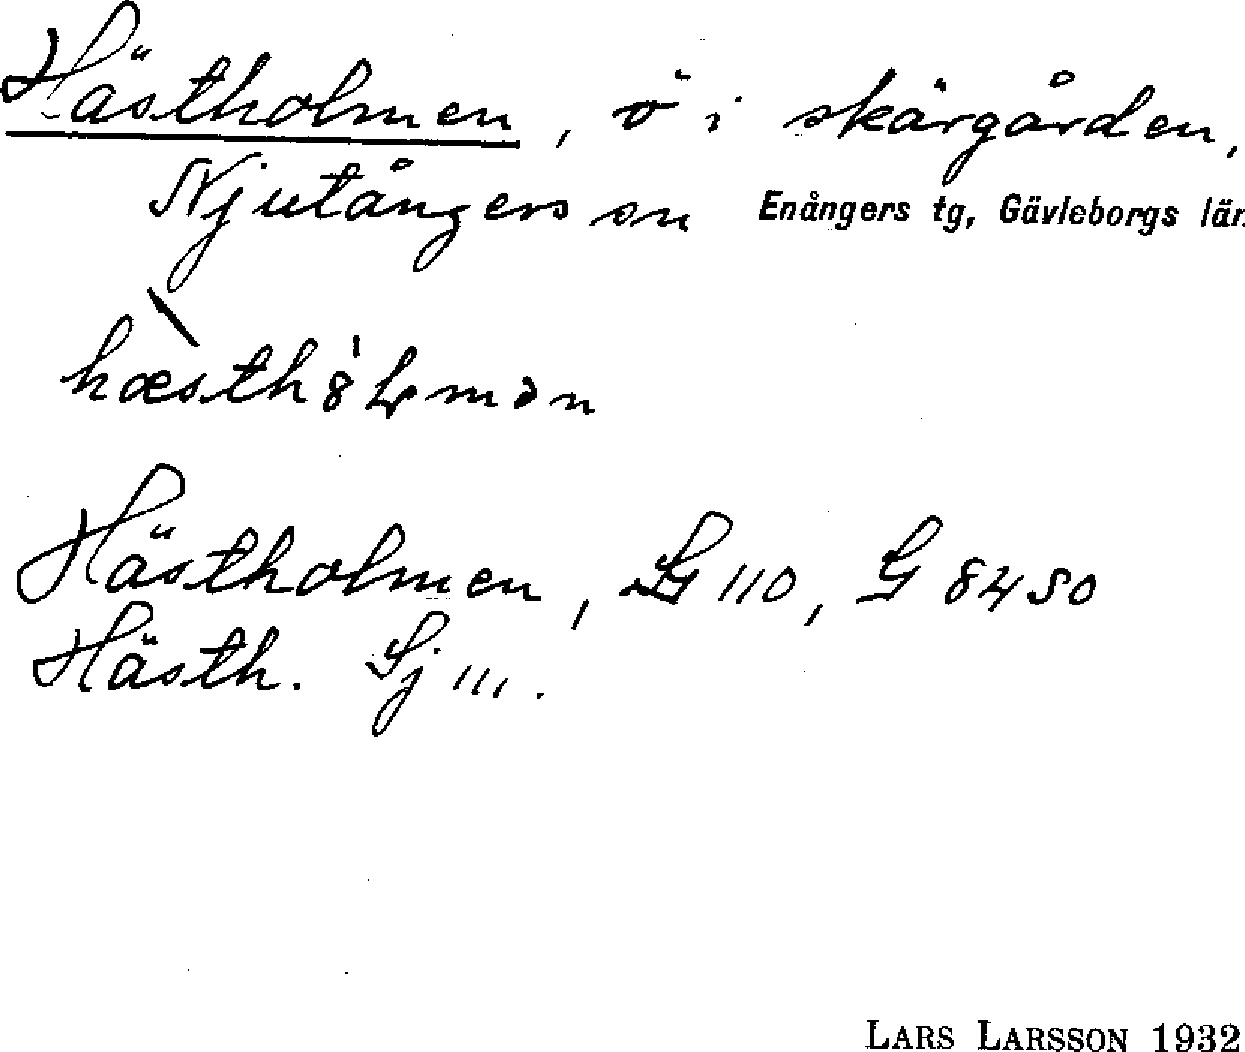 Hästholmen, ö i skärgården,
Njutångers sn Enångers tg, Gävleborgs län
Hästholmen, SG 110, G 8450
Hästh. Sj 111.
LARS LARSSON 1932